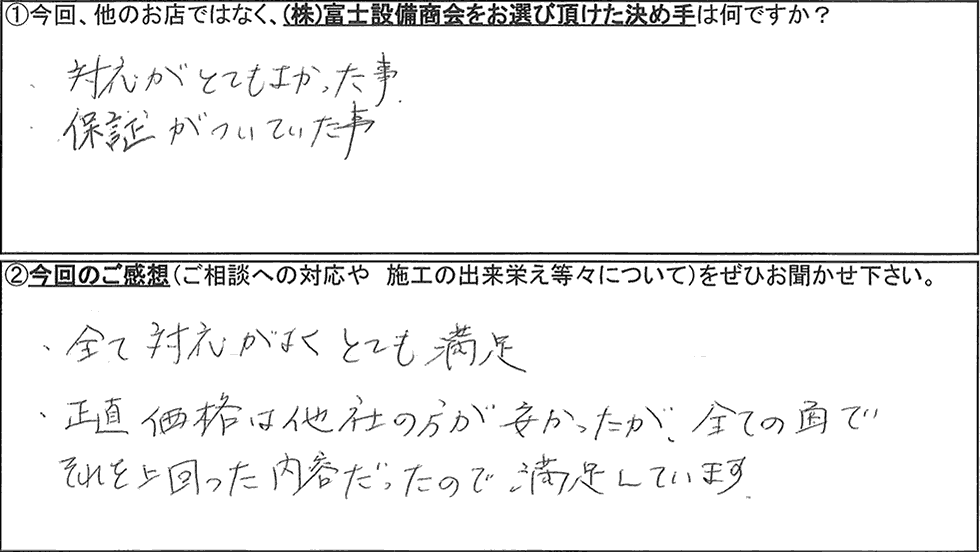 ①今回、他のお店ではなく、(株)富士設備商会をお選び頂けた決め手は何ですか？
・対応がとてもよかった事.
・保証がついていた事
②今回のご感想(ご相談への対応や　施工の出来栄え等々について)をぜひお聞かせ下さい。
・全て対応がよくとても満足
・正直価格は他社の方が安かったが、全ての面で
それを上回った内容だったので満足しています.